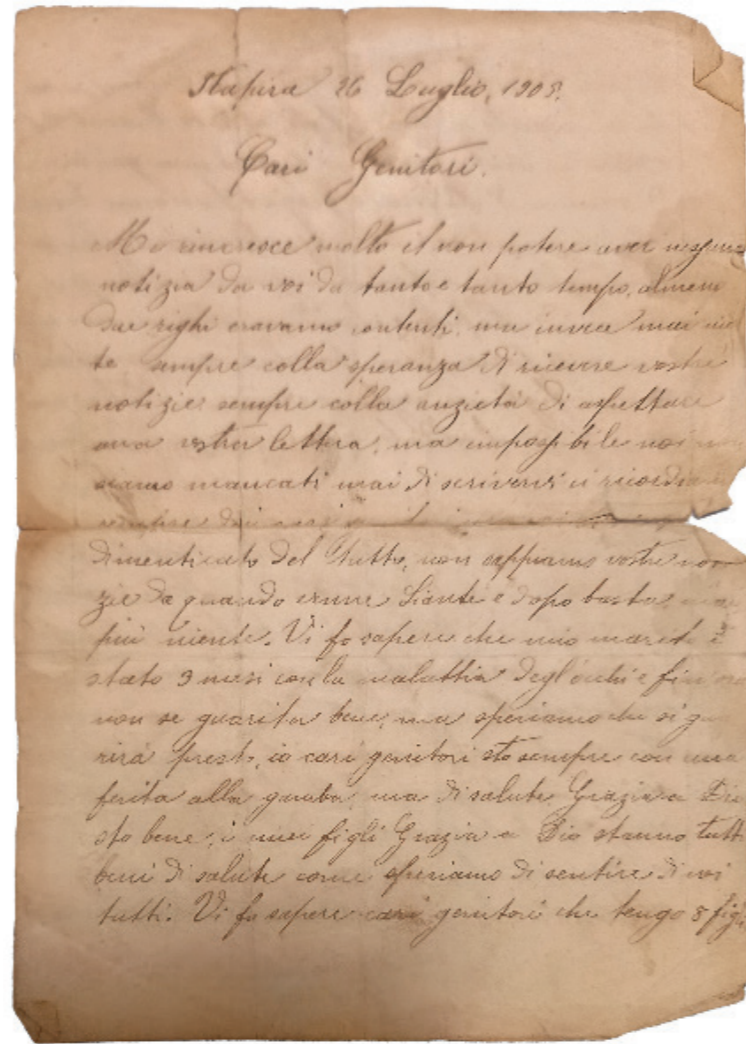 Itapira 26 Luglio, 1905.
Cari Genitori.
Mi rincresce molto il non potere aver nessuna
notizia da voi da tanto e tanto tempo, almeno
due righi eravamo contenti, ma invece mai nie
te sempre colla speranza di ricevere vostre
notizie sempre colla anzietà di aspettare
una vostra lettera, ma impossibile noi
siamo mancati mai di scrivervi ci ricordiamo
sempre
dimenticato del tutto, non sappiamo vostre noti
zie da quando e dopo basta, mai
più niente. Vi fo sapere che mio marito è
stato 3 mesi con la malattia degl'occhi e fin ora
non se guarita bene, ma speriamo che si gua
rirà presto, io cari genitori sto sempre con una
ferita alla gamba, ma di salute Grazia a Dio
sto bene, i miei figli Grazia a Dio stanno tutti
beni di salute come speriamo di sentire di voi
tutti. Vi fo sapere cari genitori che tengo 8 figli